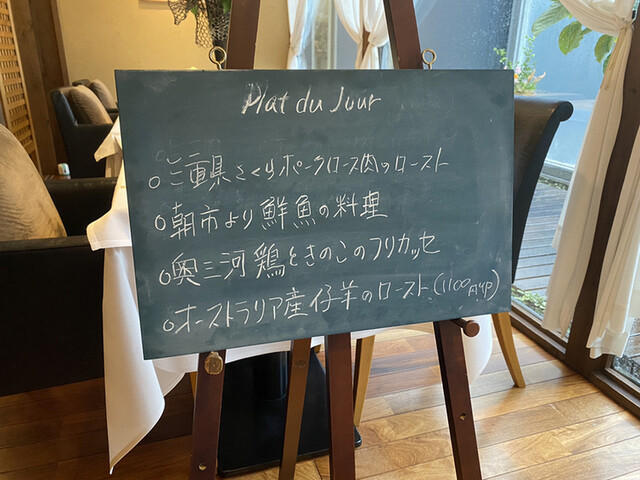 Plat du Jour
○三重県さくらポークロース肉のロースト
○朝市より鮮魚の料理
○奥三河鶏ときのこのフリカッセ
○オーストラリア産仔羊のロースト(1100円up)